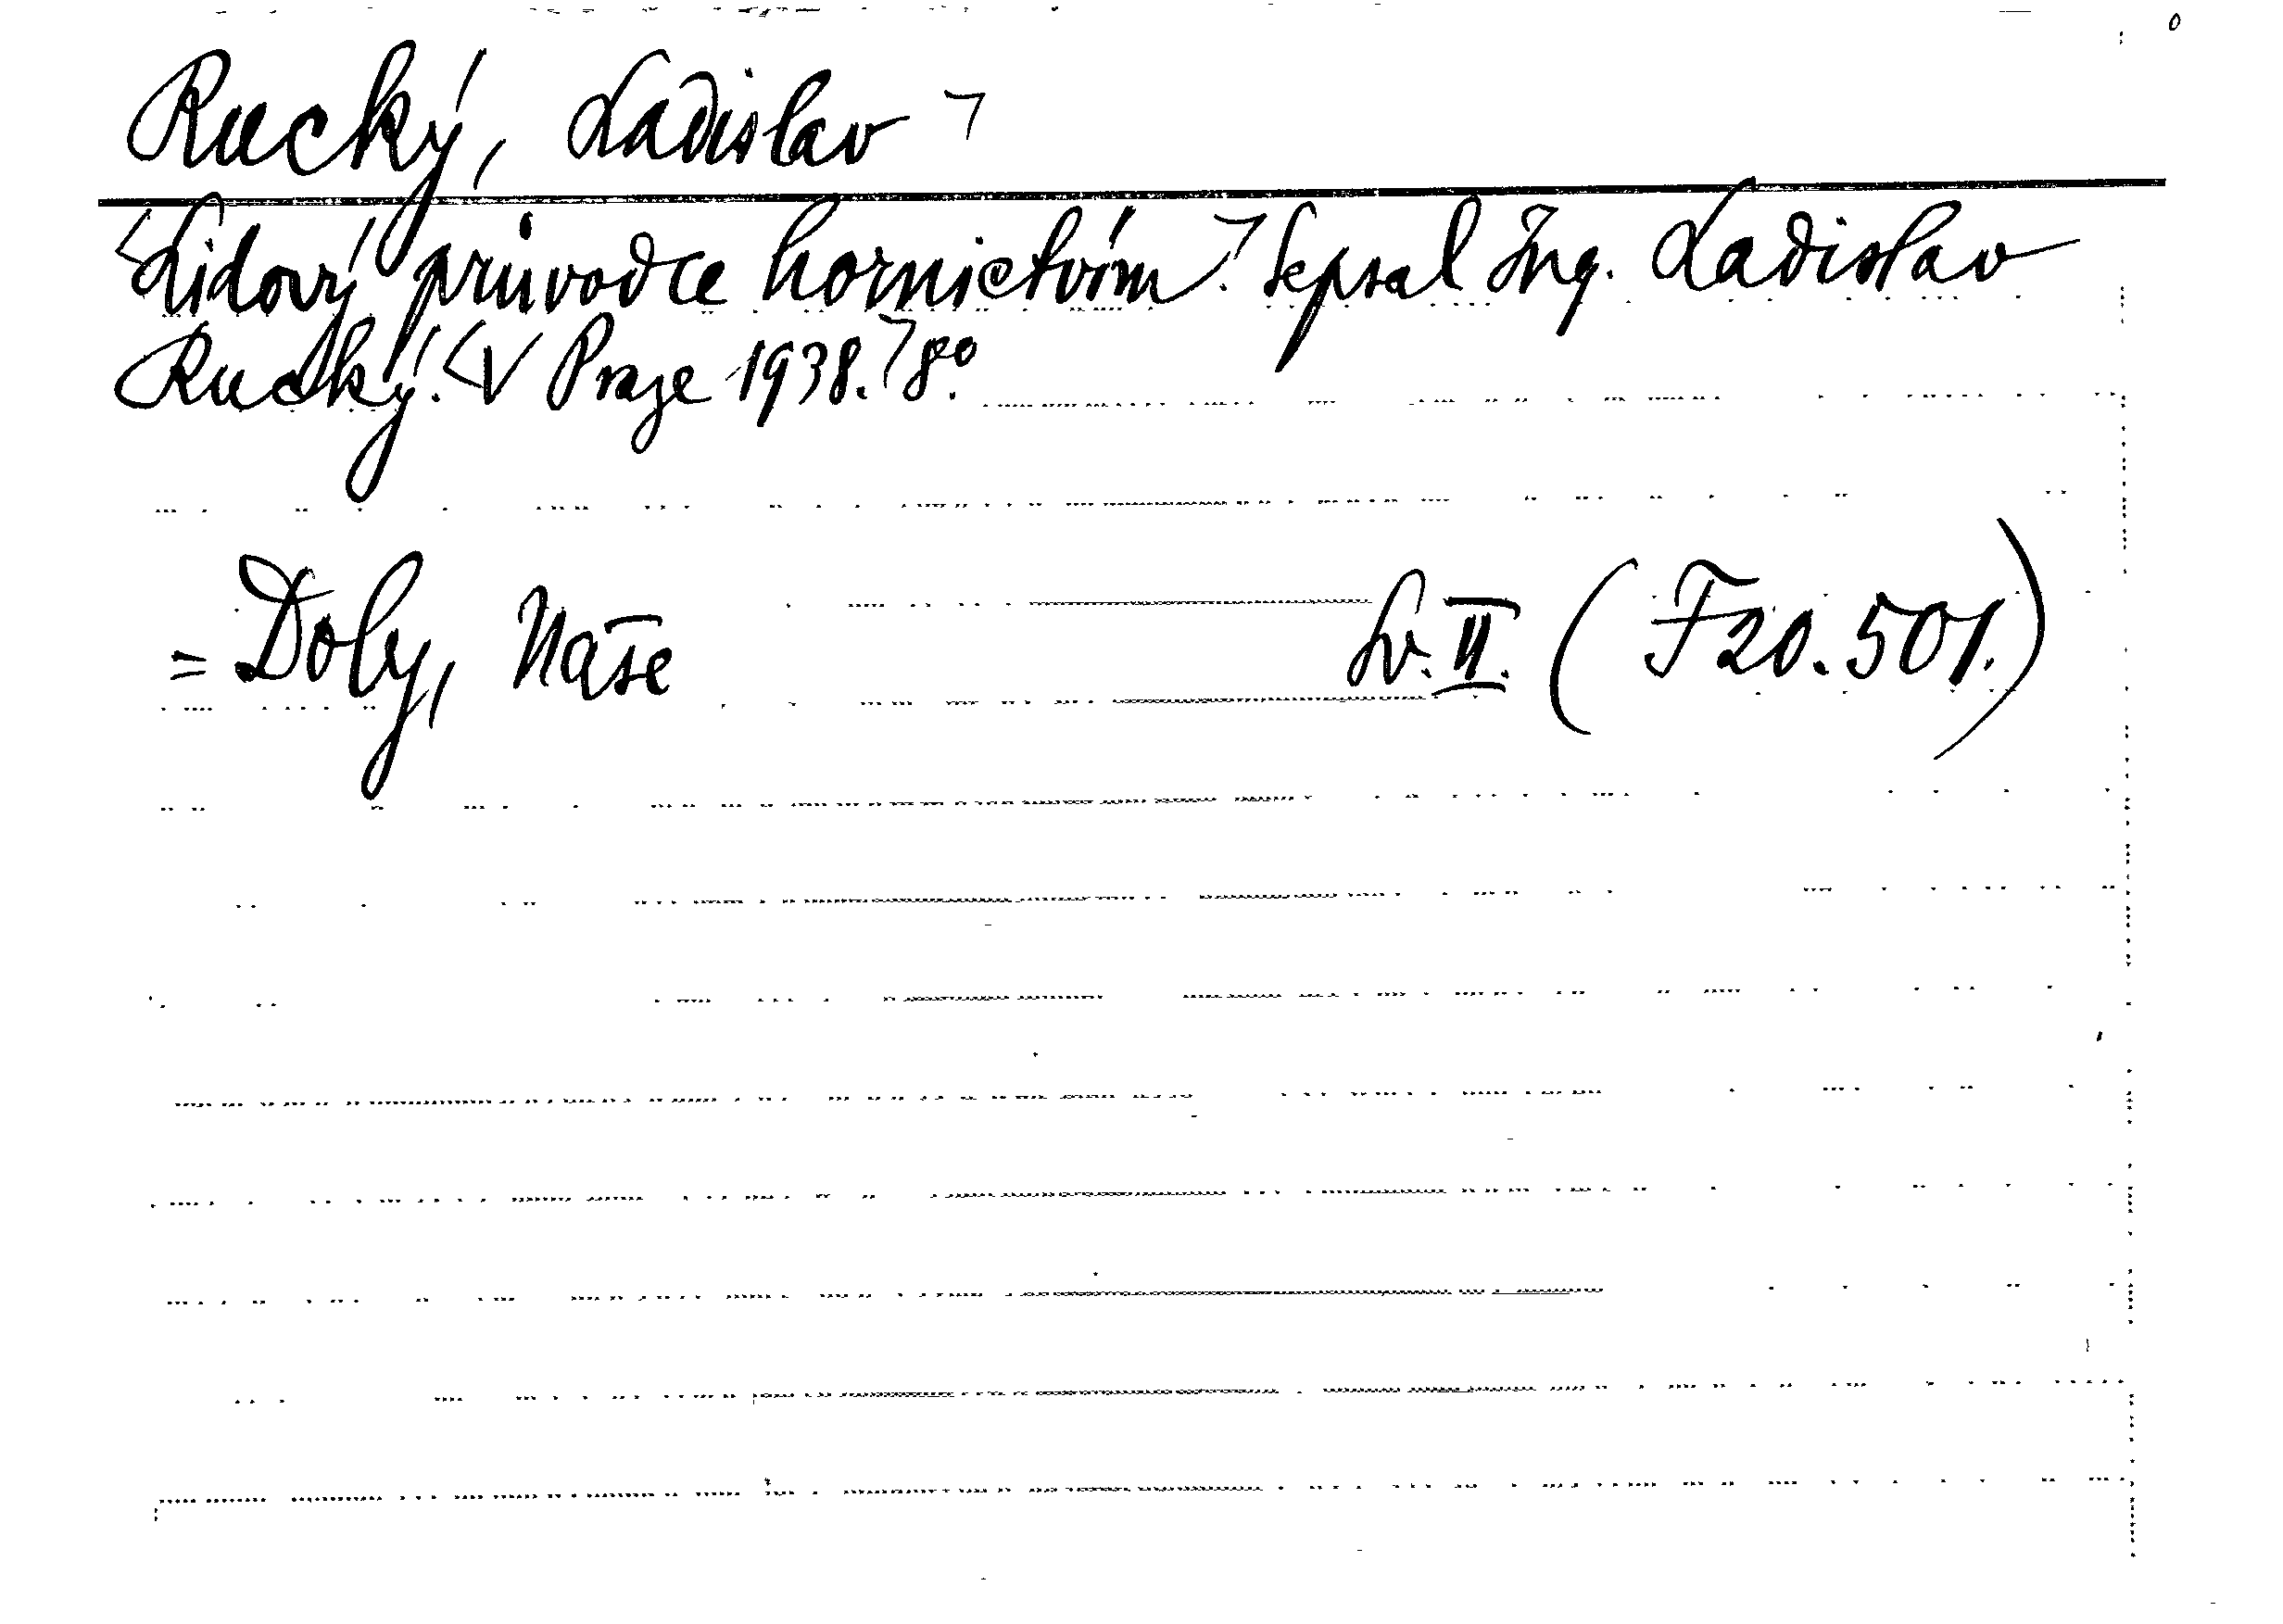 Rucký, Ladislav
Lidový průvodce hornictvím. Sepsal Ing. Ladislav
Rucký. V Praze 1938. 8°.
= Doly, Naše Sv. II. (F 20.501.)